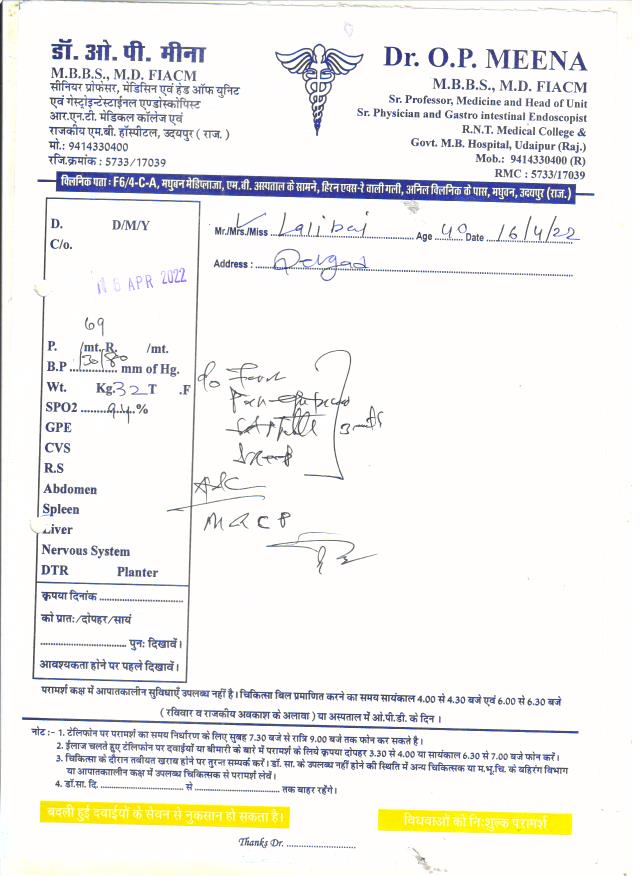 डॉ. ओ. पी. मीना
M.B.B.S., M.D. FIACM
सीनियर प्रोफेसर, मेडिसिन एवं हेड ऑफ यूनिट
एवं गेस्ट्रोइन्टेस्टाईनल एण्डोस्कोपिस्ट
आर.एन.टी. मेडिकल कॉलेज एवं
राजकीय एम.बी. हॉस्पीटल, उदयपुर ( राज. )
मो.: 9414330400
रजि.क्रमांक : 5733/17039
Dr. O.P. MEENA
M.B.B.S., M.D. FIACM
Sr. Professor, Medicine and Head of Unit
Sr. Physician and Gastro intestinal Endoscopist
R.N.T. Medical College &
Govt. M.B. Hospital, Udaipur (Raj.)
Mob.: 9414330400 (R)
RMC : 5733/17039
क्लिनिक पता : F6/4-C-A, मधुबन मेडिप्लाजा, एम.बी. अस्पताल के सामने, हिरन एक्स-रे वाली गली, अनिल क्लिनिक के पास, मधुबन, उदयपुर (राज.)
Mr./Mrs./Miss Lalibai Age 40 Date 16/4/22
Address :
D. D/M/Y
C/o.
16 APR 2022
69
P. /mt. R. /mt.
B.P 130/80 mm of Hg.
Wt. Kg. 32 T .F
SPO2 94 %
GPE
CVS
R.S
Abdomen
Spleen
Liver
Nervous System
DTR Planter
MRCP
कृपया दिनांक
को प्रात:/दोपहर/सायं
पुन: दिखावें।
आवश्यकता होने पर पहले दिखावें।
परामर्श कक्ष में आपातकालीन सुविधाएँ उपलब्ध नहीं है। चिकित्सा बिल प्रमाणित करने का समय सायंकाल 4.00 से 4.30 बजे एवं 6.00 से 6.30 बजे
( रविवार व राजकीय अवकाश के अलावा ) या अस्पताल में ओ.पी.डी. के दिन ।
नोट :- 1. टेलिफोन पर परामर्श का समय निर्धारण के लिए सुबह 7.30 बजे से रात्रि 9.00 बजे तक फोन कर सकते है।
2. ईलाज चलते हुए टेलिफोन पर दवाईयों या बीमारी के बारे में परामर्श के लिये कृपया दोपहर 3.30 से 4.00 या सायंकाल 6.30 से 7.00 बजे फोन करें।
3. चिकित्सा के दौरान तबीयत खराब होने पर तुरन्त सम्पर्क करें। डॉ. सा. के उपलब्ध नहीं होने की स्थिति में अन्य चिकित्सक या म.भू.चि. के बहिरंग विभाग
या आपातकालीन कक्ष में उपलब्ध चिकित्सक से परामर्श लेवें।
4. डॉ.सा. दि. से तक बाहर रहेंगे।
बदली हुई दवाईयों के सेवन से नुकसान हो सकता है।
विधवाओं को नि:शुल्क परामर्श
Thanks Dr.